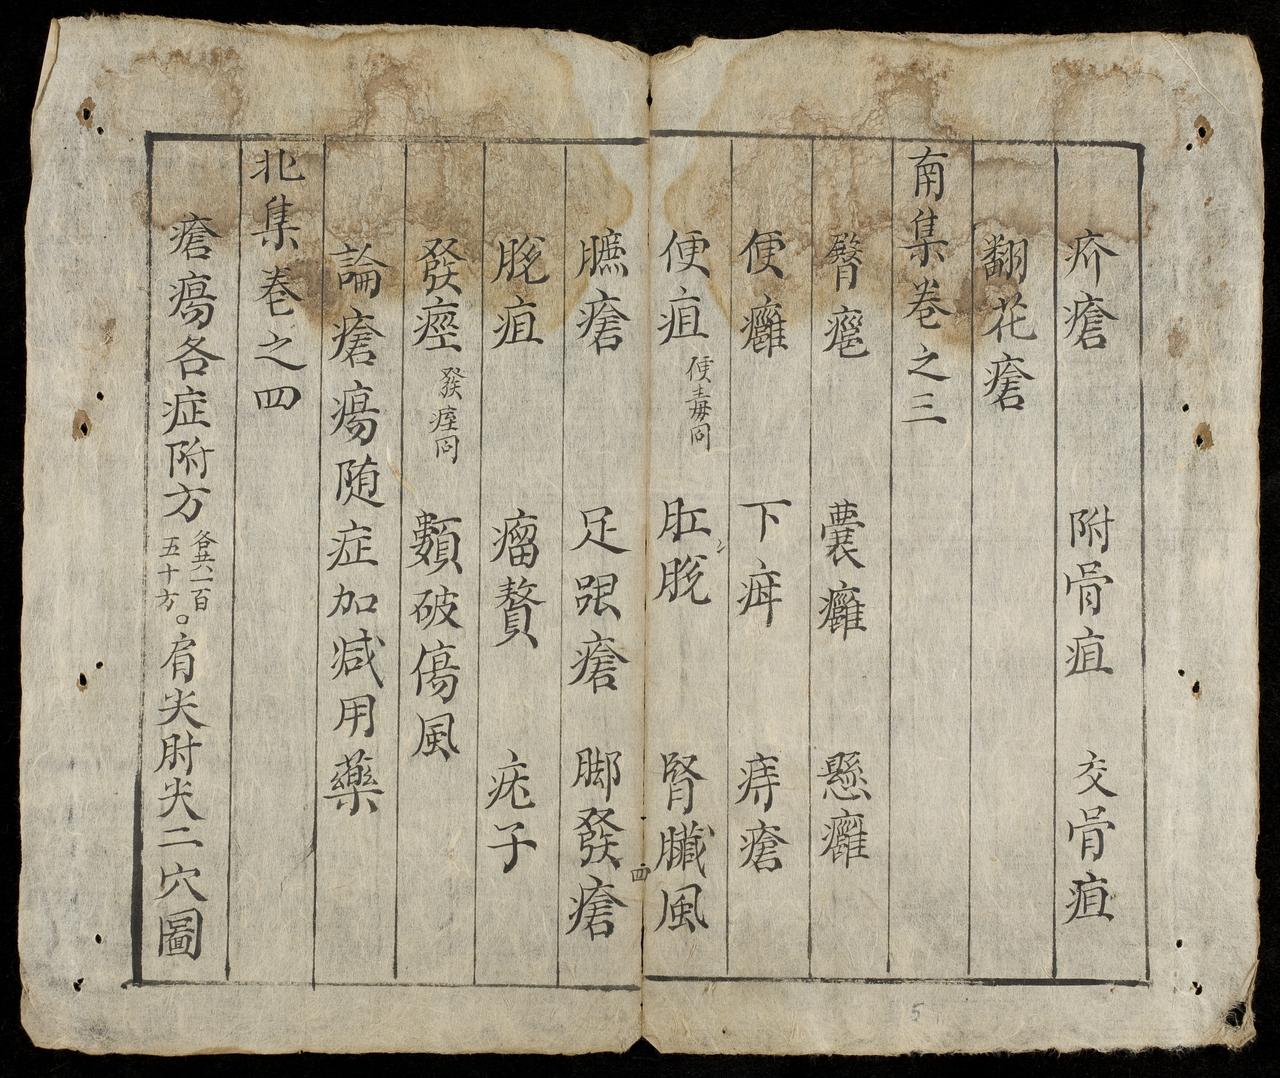 疥瘡 附骨疽 交骨疽
翻花瘡
南集卷之三
臀癰 囊癰 懸癰
便癰 下疳 痔瘡
便疽 便毒同 肛脫 腎臟風
臁瘡 足跟瘡 脚發瘡
四
脫疽 瘤贅 疣子
發痙 發痓同 類破傷風
論瘡瘍随症加减用藥
北集卷之四
瘡瘍各症附方 各共一百五十方 ○肩尖肘尖二穴圖
5